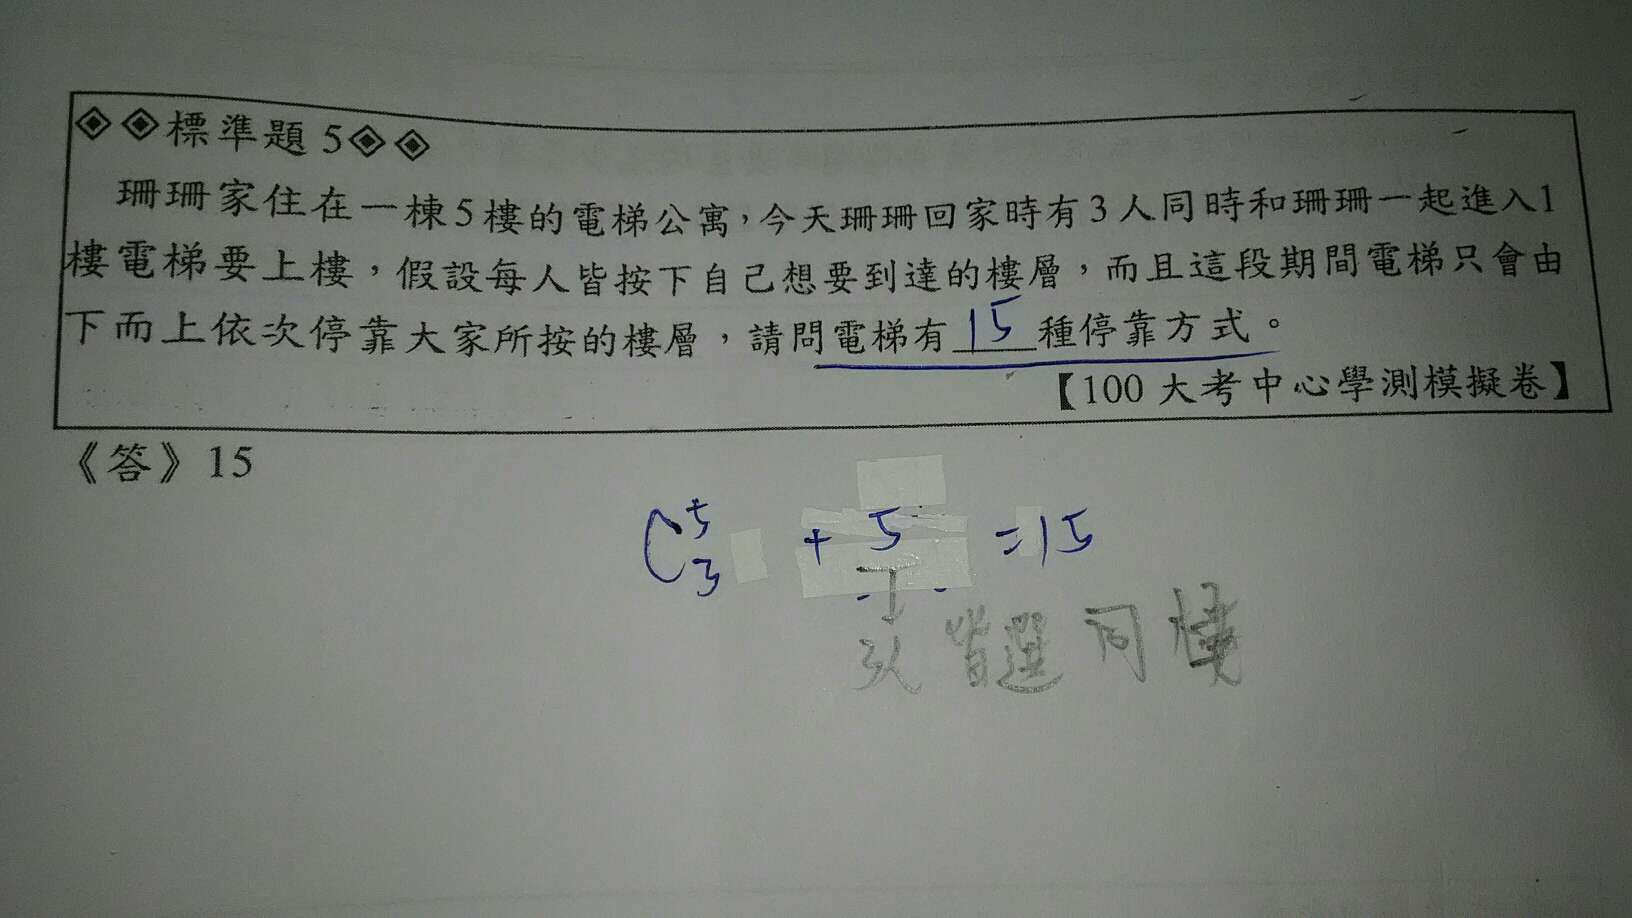 ◈◈標準題5◈◈
珊珊家住在一棟5樓的電梯公寓，今天珊珊回家時有3人同時和珊珊一起進入1
樓電梯要上樓，假設每人皆按下自己想要到達的樓層，而且這段期間電梯只會由
下而上依次停靠大家所按的樓層，請問電梯有15種停靠方式。
【100大考中心學測模擬卷】
《答》15
C⁵₃ + 5 =15
3人皆選同樓